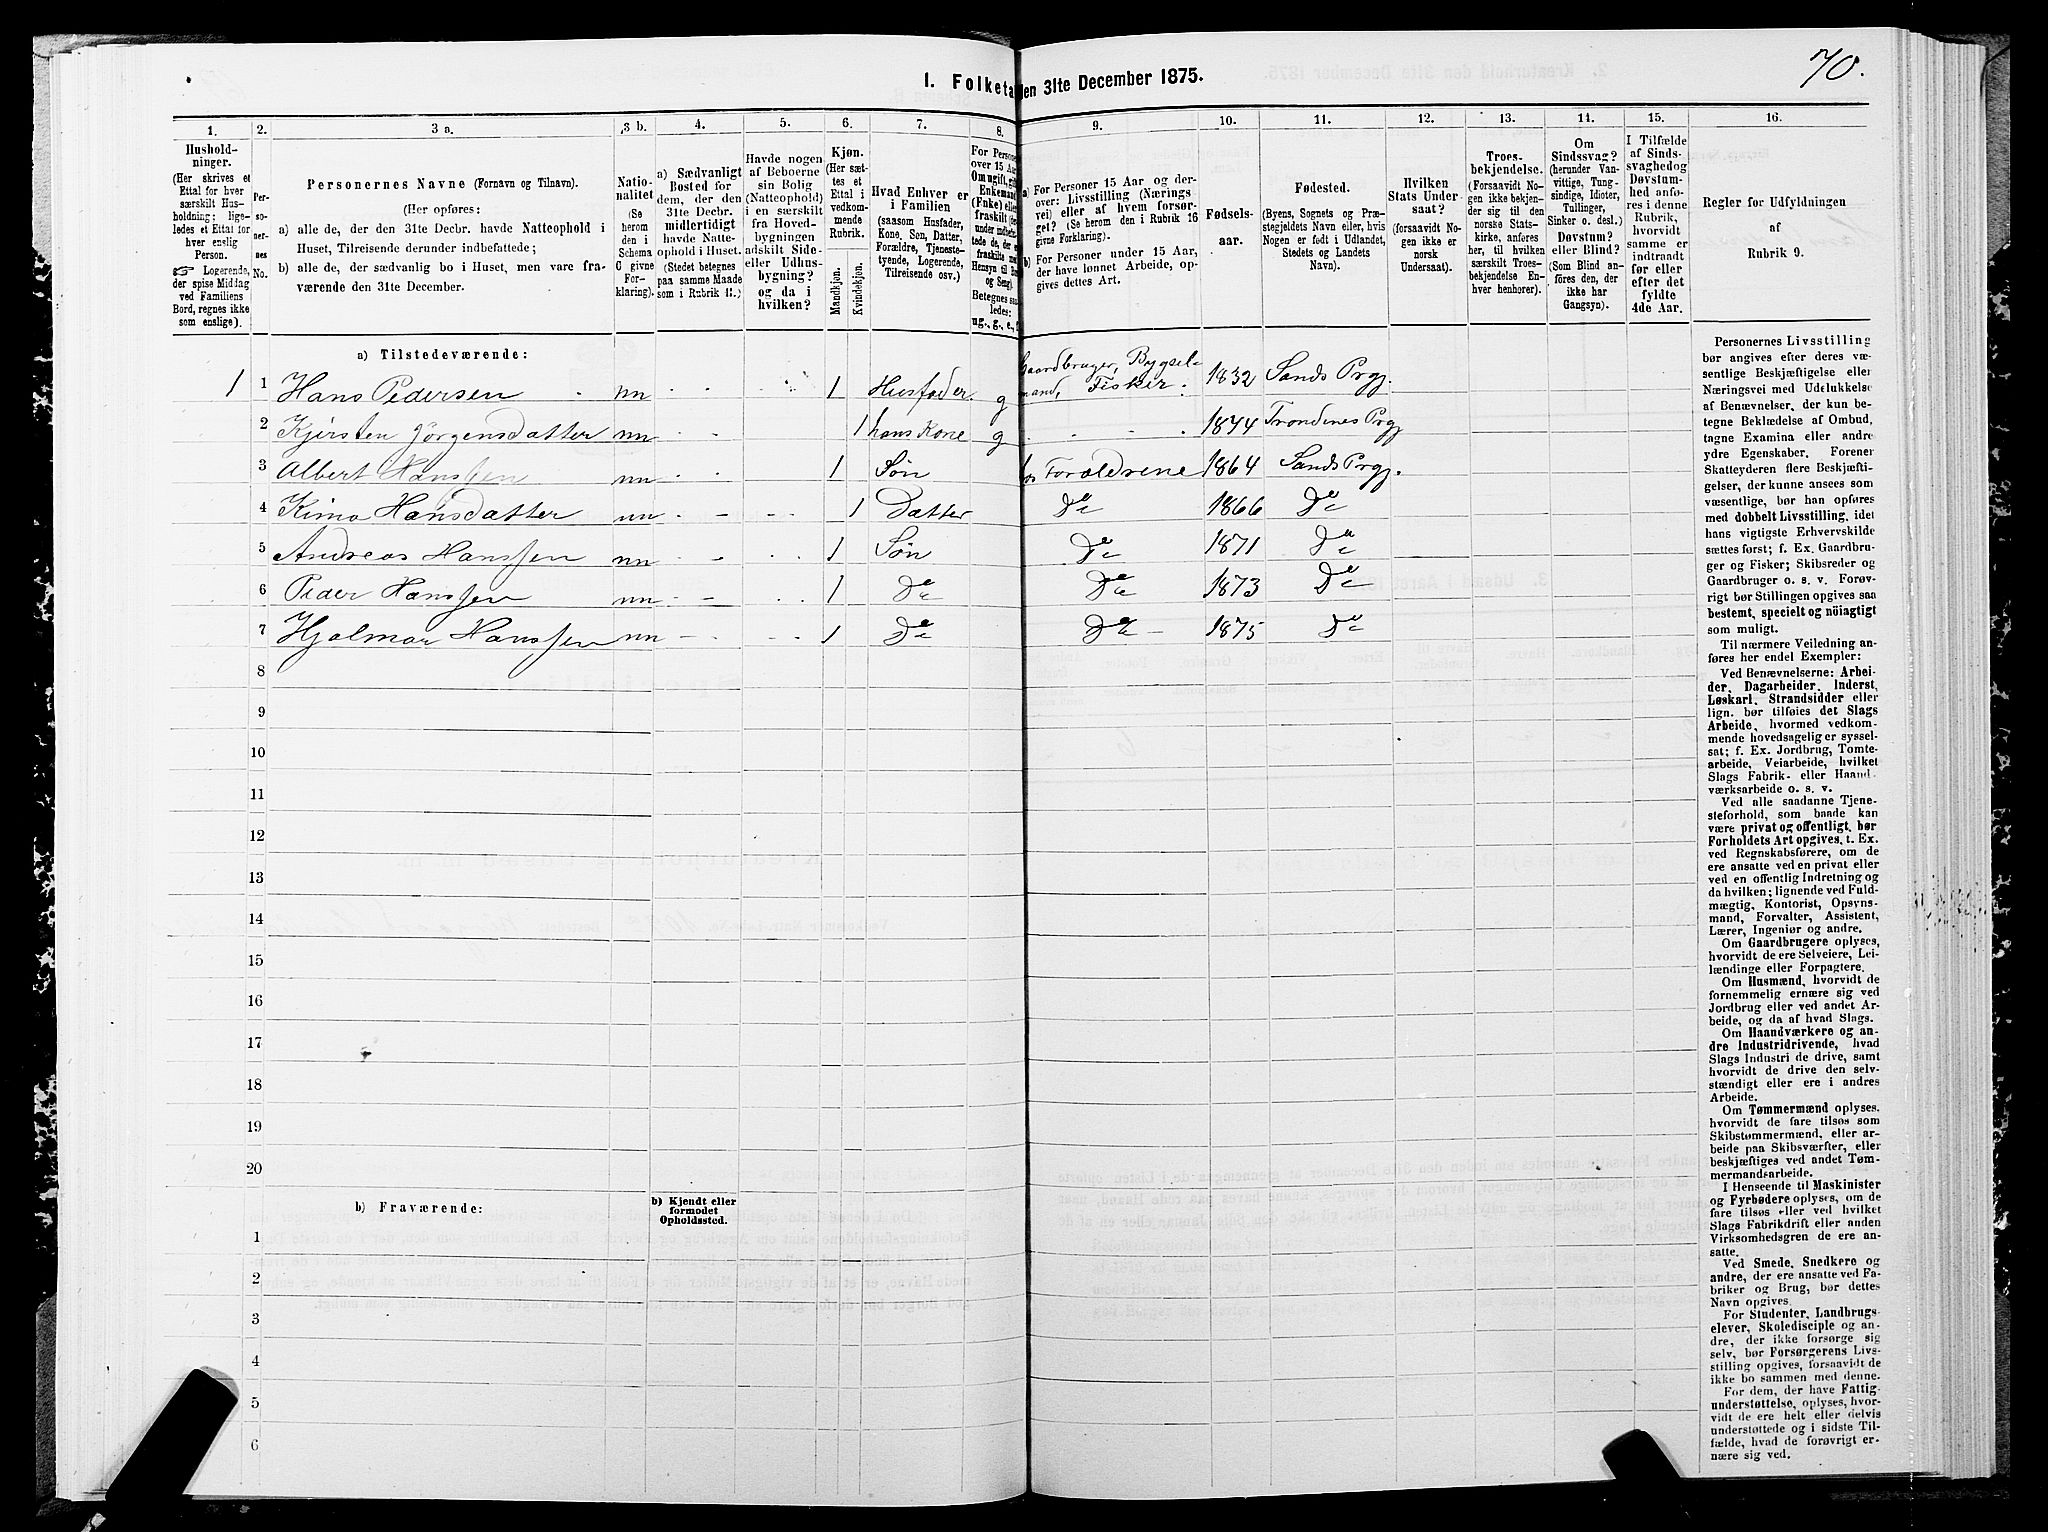 70.
I. Folketa
en 31te December 1875.
1. 2. 3 a. 3 b. 4. 5. 6. 7. 8. 9. 10. 11. 12. 13. 14. 15. 16.
Hushold-
ninger.
(Her skrives et
Ettal for hver
særskilt Hus-
holdning; lige-
ledes et Ettal for
hver enslig
Person.
☞ Logerende,
der spise Middag
ved Familiens
Bord, regnes ikke
som enslige).
Per-
so-
ner-
nes
No.
Personernes Navne (Fornavn og Tilnavn).
(Her opføres:
a) alle de, der den 31te Decbr. havde Natteophold i
Huset, Tilreisende derunder indbefattede;
b) alle de, der sædvanlig bo i Huset, men vare fra-
værende den 31te December.
Natio-
nalitet
(Se
herom
den i
Schema
6 givne
For-
klaring).
a) Sædvanligt
Bosted for
dem, der den
31te Decbr.
midlertidigt
havde Natte-
ophold i Huset.
(Stedet betegnes
paa samme Maade
som i Rubrik 11.)
Havde nogen
af Beboerne
sin Bolig
(Natteophold)
i en særskilt
fra Hoved-
bygningen
adskilt Side-
eller Udhus-
bygning?
og da i
hvilken?
Kjøn.
(Her sæt-
tes et
Ettal i
vedkom-
mende
Rubrik.
Mandkjøn.
Kvindekjøn.
Hvad Enhver er
i Familien
(saasom Husfader,
Kone, Søn, Datter,
Forældre, Tjeneste-
tyende, Logerende,
Tilreisende osv.)
For Persone
over 15 Aar
Om ugift, gift
Enkemand
(Enke) eller
fraskilt
Hensyn til Bo
og Seng).
Betegnes saa-
ledes:
ug., g., e.,
a) For Personer 15 Aar og der-
over: Livsstilling (Nærings-
vei) eller af hvem forsør-
get? (Se herom den i Rubrik 16
givne Forklaring).
b) For Personer under 15 Aar,
der have lønnet Arbeide, op-
gives dettes Art.
Fødsels-
aar.
Fødested.
(Byens, Sognets og Præ-
stegjeldets Navn eller, hvis
Nogen er født i Udlandet,
Stedets og Landets
Navn).
Hvilken
Stats Under-
saat?
(forsaavidt No-
gen ikke er
norsk
Undersaat).
Troes-
bekjendelse.
(Forsaavidt No-
gen ikke bekjen-
der sig til den
norske Stats-
kirke, anføres
her, til hvilken
særskilt Troes-
bekjendelse En-
hver henhorer).
Om
Sindssvag?
(herunder Van-
vittige, Tung-
sindige, Idioter,
Tullinger,
Sinker o. desl.)
Døvstum?
eller Blind?
(Som Blind an-
føres den, der
ikke har
Gangsyn).
I Tilfælde
af Sinds-
svaghed og
Døvstum-
hed anfø-
res i denne
Rubrik,
hvorvidt
samme er
indtraadt
før eller
efter det
fyldte
4de Aar.
Regler for Udfyldningen
af
Rubrik 9.
a) Tilstedeværende:
1 1 Hans Pedersen nn 1 Husfader. g Gaardbruger, Bygsel-
mand, Fisker. 1832 Sands Prgj.
2 Kjirsten Jörgensdatter nn 1 hans Kone g 1844 Trondenes Prgj
3 Albert Hanssen nn 1 Søn hos Forældrene 1864 Sands Prgj.
4 Kima Hansdatter nn 1 Datter Do 1866 Do
5 Andreas Hanssen nn 1 Søn Do 1871 Do
6 Peder Hanssen nn 1 Do Do 1873 Do
7 Hjalmar Hanssen nn 1 Do Do 1875 Do
8
9
10
11
12
13
14
15
16
17
18
19
20
b) Fraværende:
b) Kjendt eller
formodet
Opholdssted.
1
2
3
4
5
6
Personernes Livsstilling
bør angives efter deres væ-
sentlige Beskjæftigelse eller
Næringsvei med Udelukkelse
af Benævnelser, der kun be-
tegne Beklædelse af Ombud,
tagne Examina eller andre
ydre Egenskaber. Forener
Skatteyderen flere Beskjæfti-
gelser, der kunne ansees som
væsentlige, bør han opføres
med dobbelt Livsstilling, idet
hans vigtigste Erhvervskilde
sættes først; f. Ex. Gaardbru-
ger og Fisker; Skibsreder og
Gaardbruger o. s. v. Forøv-
rigt bør Stillingen opgives saa
bestemt, specielt og nöiagtigt
som muligt.
Til nærmere Veiledning an-
føres her endel Exempler:
Ved Benævnelserne: Arbei-
der, Dagarbeider, Inderst,
Løskarl, Strandsidder eller
lign. bør tilføies det Slags
Arbeide, hvormed vedkom-
mende hovedsagelig er syssel-
sat; f. Ex. Jordbrug, Tomte-
arbeide, Veiarbeide, hvilket
Slags Fabrik- eller Haand-
værksarbeide o. s. v.
Ved alle saadanne Tjene-
steforhold, som baade kan
være privat og offentligt, bør
Forholdets Art opgives, t. Ex.
ved Regnskabsførere, om de
ere ansatte ved en privat eller
ved en offentlig Indretning og
da hvilken; lignende ved Fuld-
mægtig, Kontorist, Opsyns-
mand, Forvalter, Assistent,
Lærer, Ingeniør og andre.
Om Gaardbrugere oplyses,
hvorvidt de ere Selveiere, Lei-
lændinge eller Forpagtere.
Om Husmænd, hvorvidt de
fornemmelig ernære sig ved
Jordbrug eller ved andet Ar-
beide, og da af hvad Slags.
Om Haandværkere og an-
dre Industridrivende, hvad
Slags Industri de drive, samt
hvorvidt de drive den selv-
stændigt eller ere i andres
Arbeide.
Om Tømmermænd oplyses,
hvorvidt de fare tilsøs som
Skibstømmermænd, eller ar-
beide paa Skibsværfter, eller
beskjæftiges ved andet Tøm-
mermandsarbeide.
I Henseende til Maskinister
og Fyrbødere oplyses, om de
fare tilsøs eller ved hvilket
Slags Fabrikdrift eller anden
Virksomhedsgren de ere an-
satte.
Ved Smede, Snedkere og
andre, der ere ansatte ved Fa-
briker og Brug, bør dettes
Navn opgives.
For Studenter, Landbrugs-
elever, Skoledisciple og an-
dre, der ikke forsørge sig
selv, bør Forsørgerens Livs-
stilling opgives, forsaavidt de
ikke bo sammen med denne.
For dem, der have Fattig-
understøttelse, oplyses, hvor-
vidt de ere helt eller delvis
understøttede og i sidste Til-
fælde, hvad de forøvrigt er-
nære sig ved.